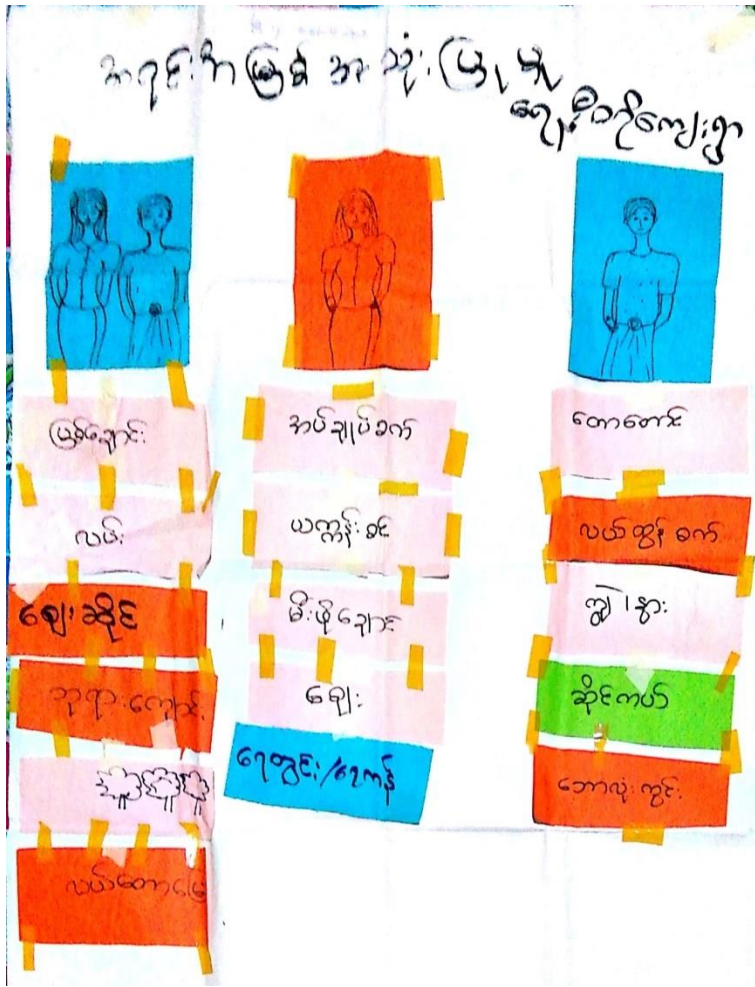 အရင်းအမြစ် အသုံးပြုမှု
ကျေးရွာ
မြစ်ချောင်း
လမ်း
ဈေးဆိုင်
ဘုရားကျောင်း
လယ်တောမြေ
အပ်ချုပ်စက်
ယက္ကန်းစင်
မီးဖိုချောင်
ဈေး
ရေတွင်း/ရေကန်
တောတောင်
လယ်ထွန်စက်
ကျွဲ၊နွား
ဆိုင်ကယ်
ဘောလုံးကွင်း